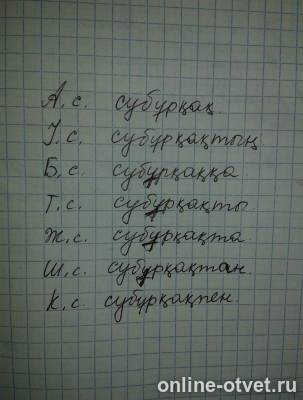 А.с. субұрқақ
І.с. субұрқақтың
Б.с. субұрқаққа
Т.с. субұрқақты
Ж.с. субұрқақта
Ш.с. субұрқақтан
К.с. субұрқақпен
online-otvet.ru